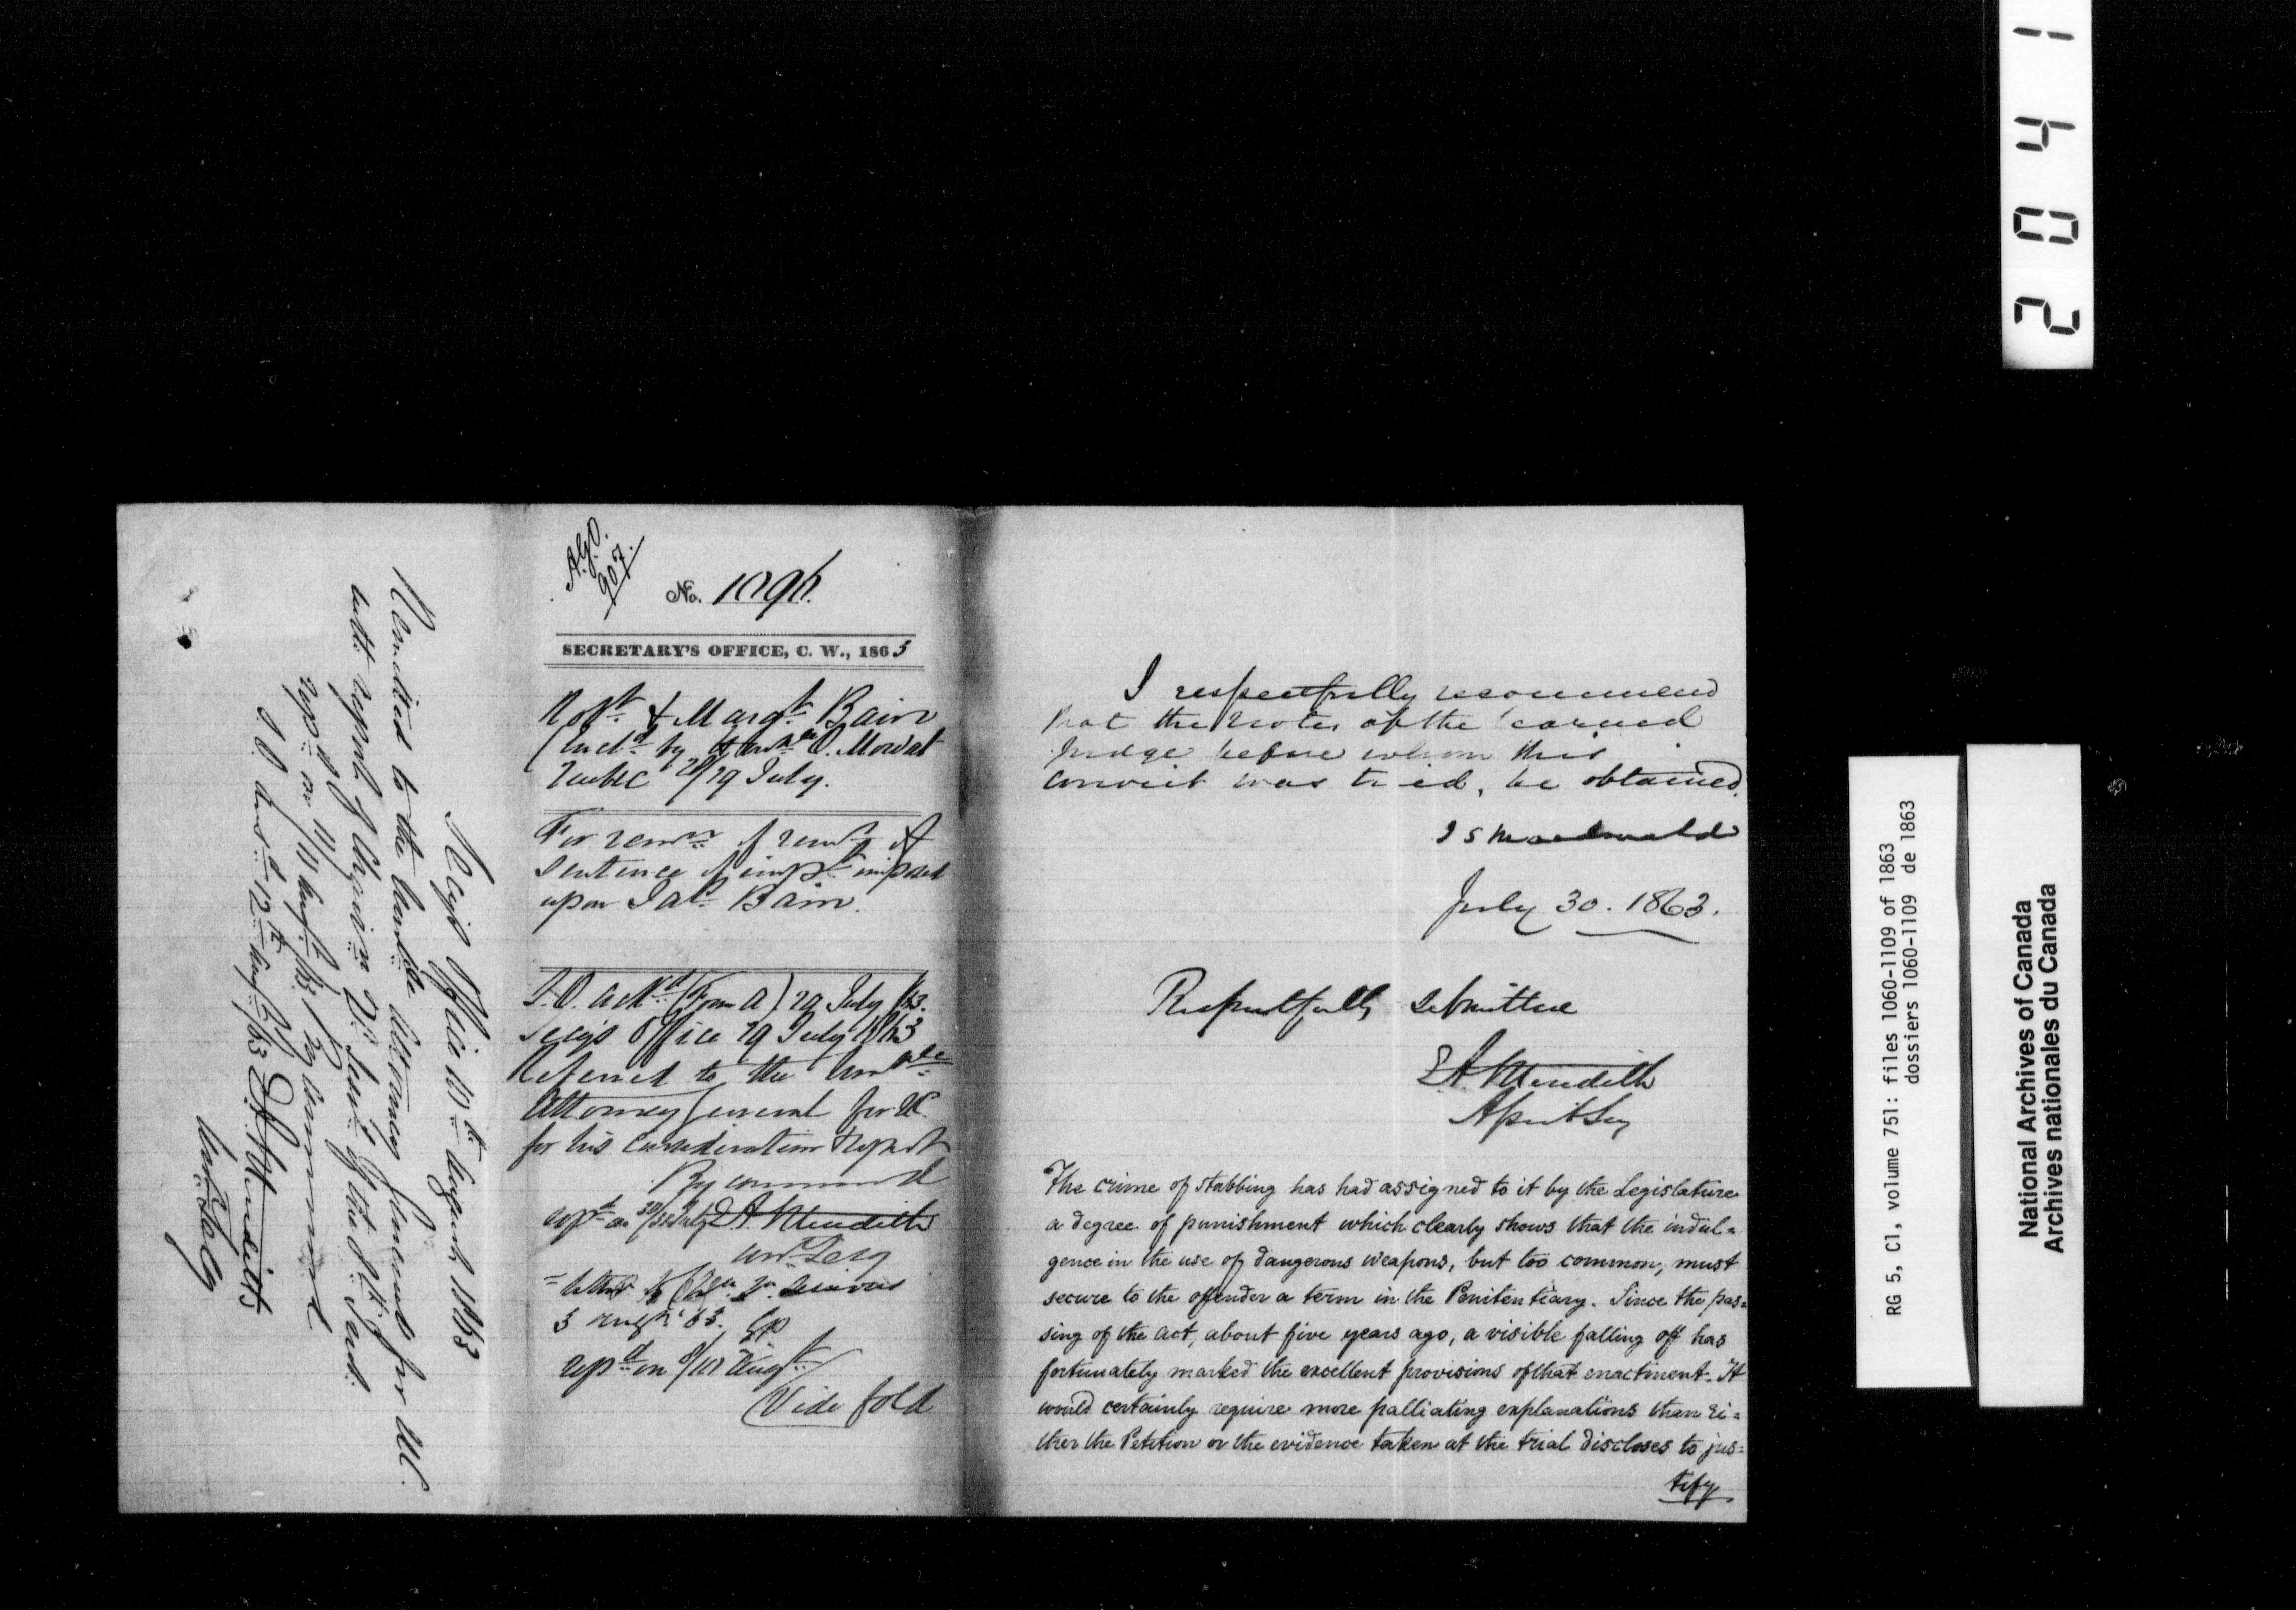 A.G.O.
907.
No. 1096.
SECRETARY'S OFFICE, C. W., 1863
Robt. & Margt. Bain
(Encld. by Honble. O. Mowat
Quebec 28/29 July.
For remn. of
sentence of impt. imposed
upon Jas. Bain.
S.O. Ackd. (Form A) 29 July /63.
Secy's Office 29 July 1863
Referred to the Honble
Attorney General for UC.
for his consideration & report
By command
E A Meredith
Asst. Secy
3 Augt. 63.
repd. on 8/10 Augt.
Vide fold
Secy's Office 10th August 1863
Remitted to the Honble Attorney General for UC.
with report of the 8th Inst.
By command
E A Meredith
Asst. Secy
I respectfully recommend
that the notes of the learned
Judge before whom this
convict was tried, be obtained.
J S Macdonald
July 30. 1863.
Respectfully submitted
E A Meredith
Asst Secy
The crime of stabbing has had assigned to it by the Legislature
a degree of punishment which clearly shows that the indul=
gence in the use of dangerous weapons, but too common, must
secure to the offender a term in the Penitentiary. Since the pas=
sing of the act, about five years ago, a visible falling off has
fortunately marked the excellent provisions of that enactment. It
would certainly require more palliating explanations than ei=
ther the Petition or the evidence taken at the trial discloses to jus=
tify
2041
RG 5, C1, volume 751: files 1060-1109 of 1863
dossiers 1060-1109 de 1863
National Archives of Canada
Archives nationales du Canada